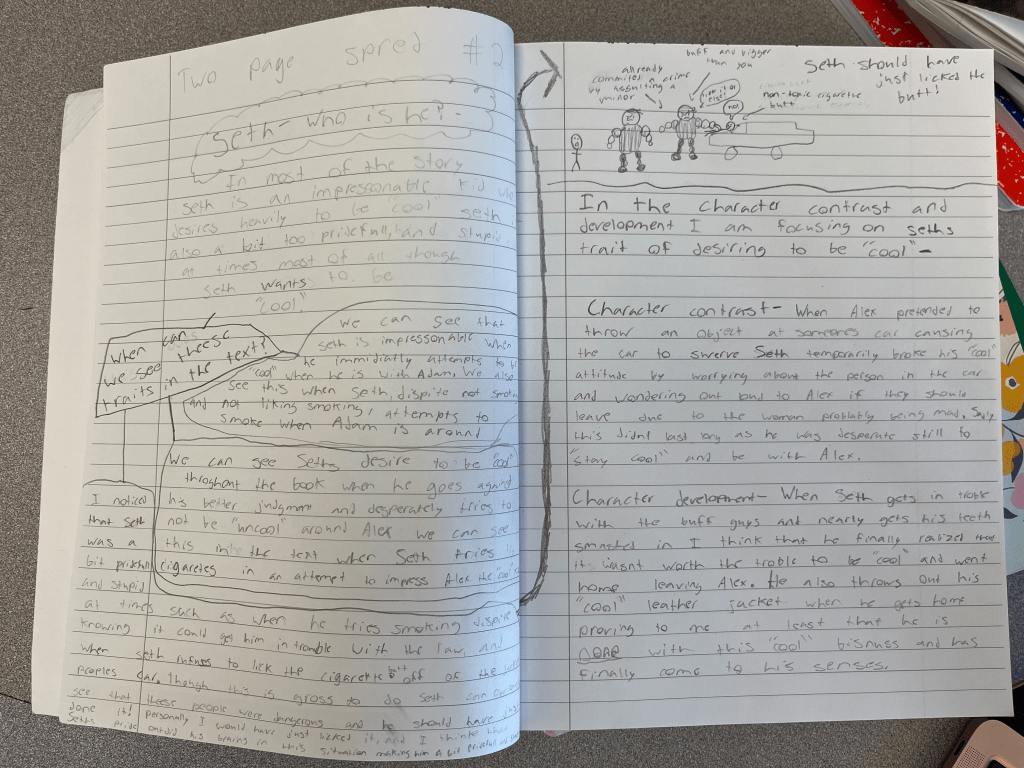 Two page spred #2
Seth - who is he? -
In most of the story
seth is an impressonable kid who
desires heavily to be "cool" seth
also a bit too pridefull, and stupid
at times most of all though
seth wants to be
"cool"
When can
we see theese
traits in the text?
We can see that
seth is impressonable when
he immidiatly attempts to
"cool" when he is with Adam, We also
See this when Seth, dispite not smoking
and not liking smoking, attempts to
smoke when Adam is around
We can see Seths desire to be "cool"
throghout the book when he goes against
his better judgment and desperately tries to
not be "uncool" around Alex we can see
this in the text when Seth tries
cigaretes in an attempt to impress Alex the "cool"
I noticed
that Seth
was a
bit pridefull
and stupid
at times such as when he tries smoking dispite
knowing it could get him in trouble with the law, and
when seth refuses to lick the cigarette butt off of the
peoples car, Though this is gross to do Seth can
see that these people were dangerous and he should have just
done it! personally I would have just licked it, and I think
Seths pride his brains in this situation making him a bit pridefull and
already
commited a crime
by assulting a
minor
buff and bigger
than you
lick it or
fight
no!
non-toxic cigarette
butt
Seth should have
just licked the
butt!
In the character contrast and
development I am focusing on seths
trait of desiring to be "cool" -
Character contrast - When Alex pretended to
throw an object at someones car causing
the car to swerve Seth temporarily broke his "cool"
attitude by worrying about the person in the car
and wondering out loud to Alex if they should
leave due to the woman problably being mad, Sadly
this didnt last long as he was desperate still to
"stay cool" and be with Alex.
Character development - When Seth gets in troble
with the buff guys and nearly gets his teeth
smashed in I think that he finally realized that
it wasnt worth the troble to be "cool" and went
home leaving Alex. He also throws out his
"cool" leather jacket when he gets home
proving to me at least that he is
DONE with this "cool" bisnuss and has
finally come to his senses.